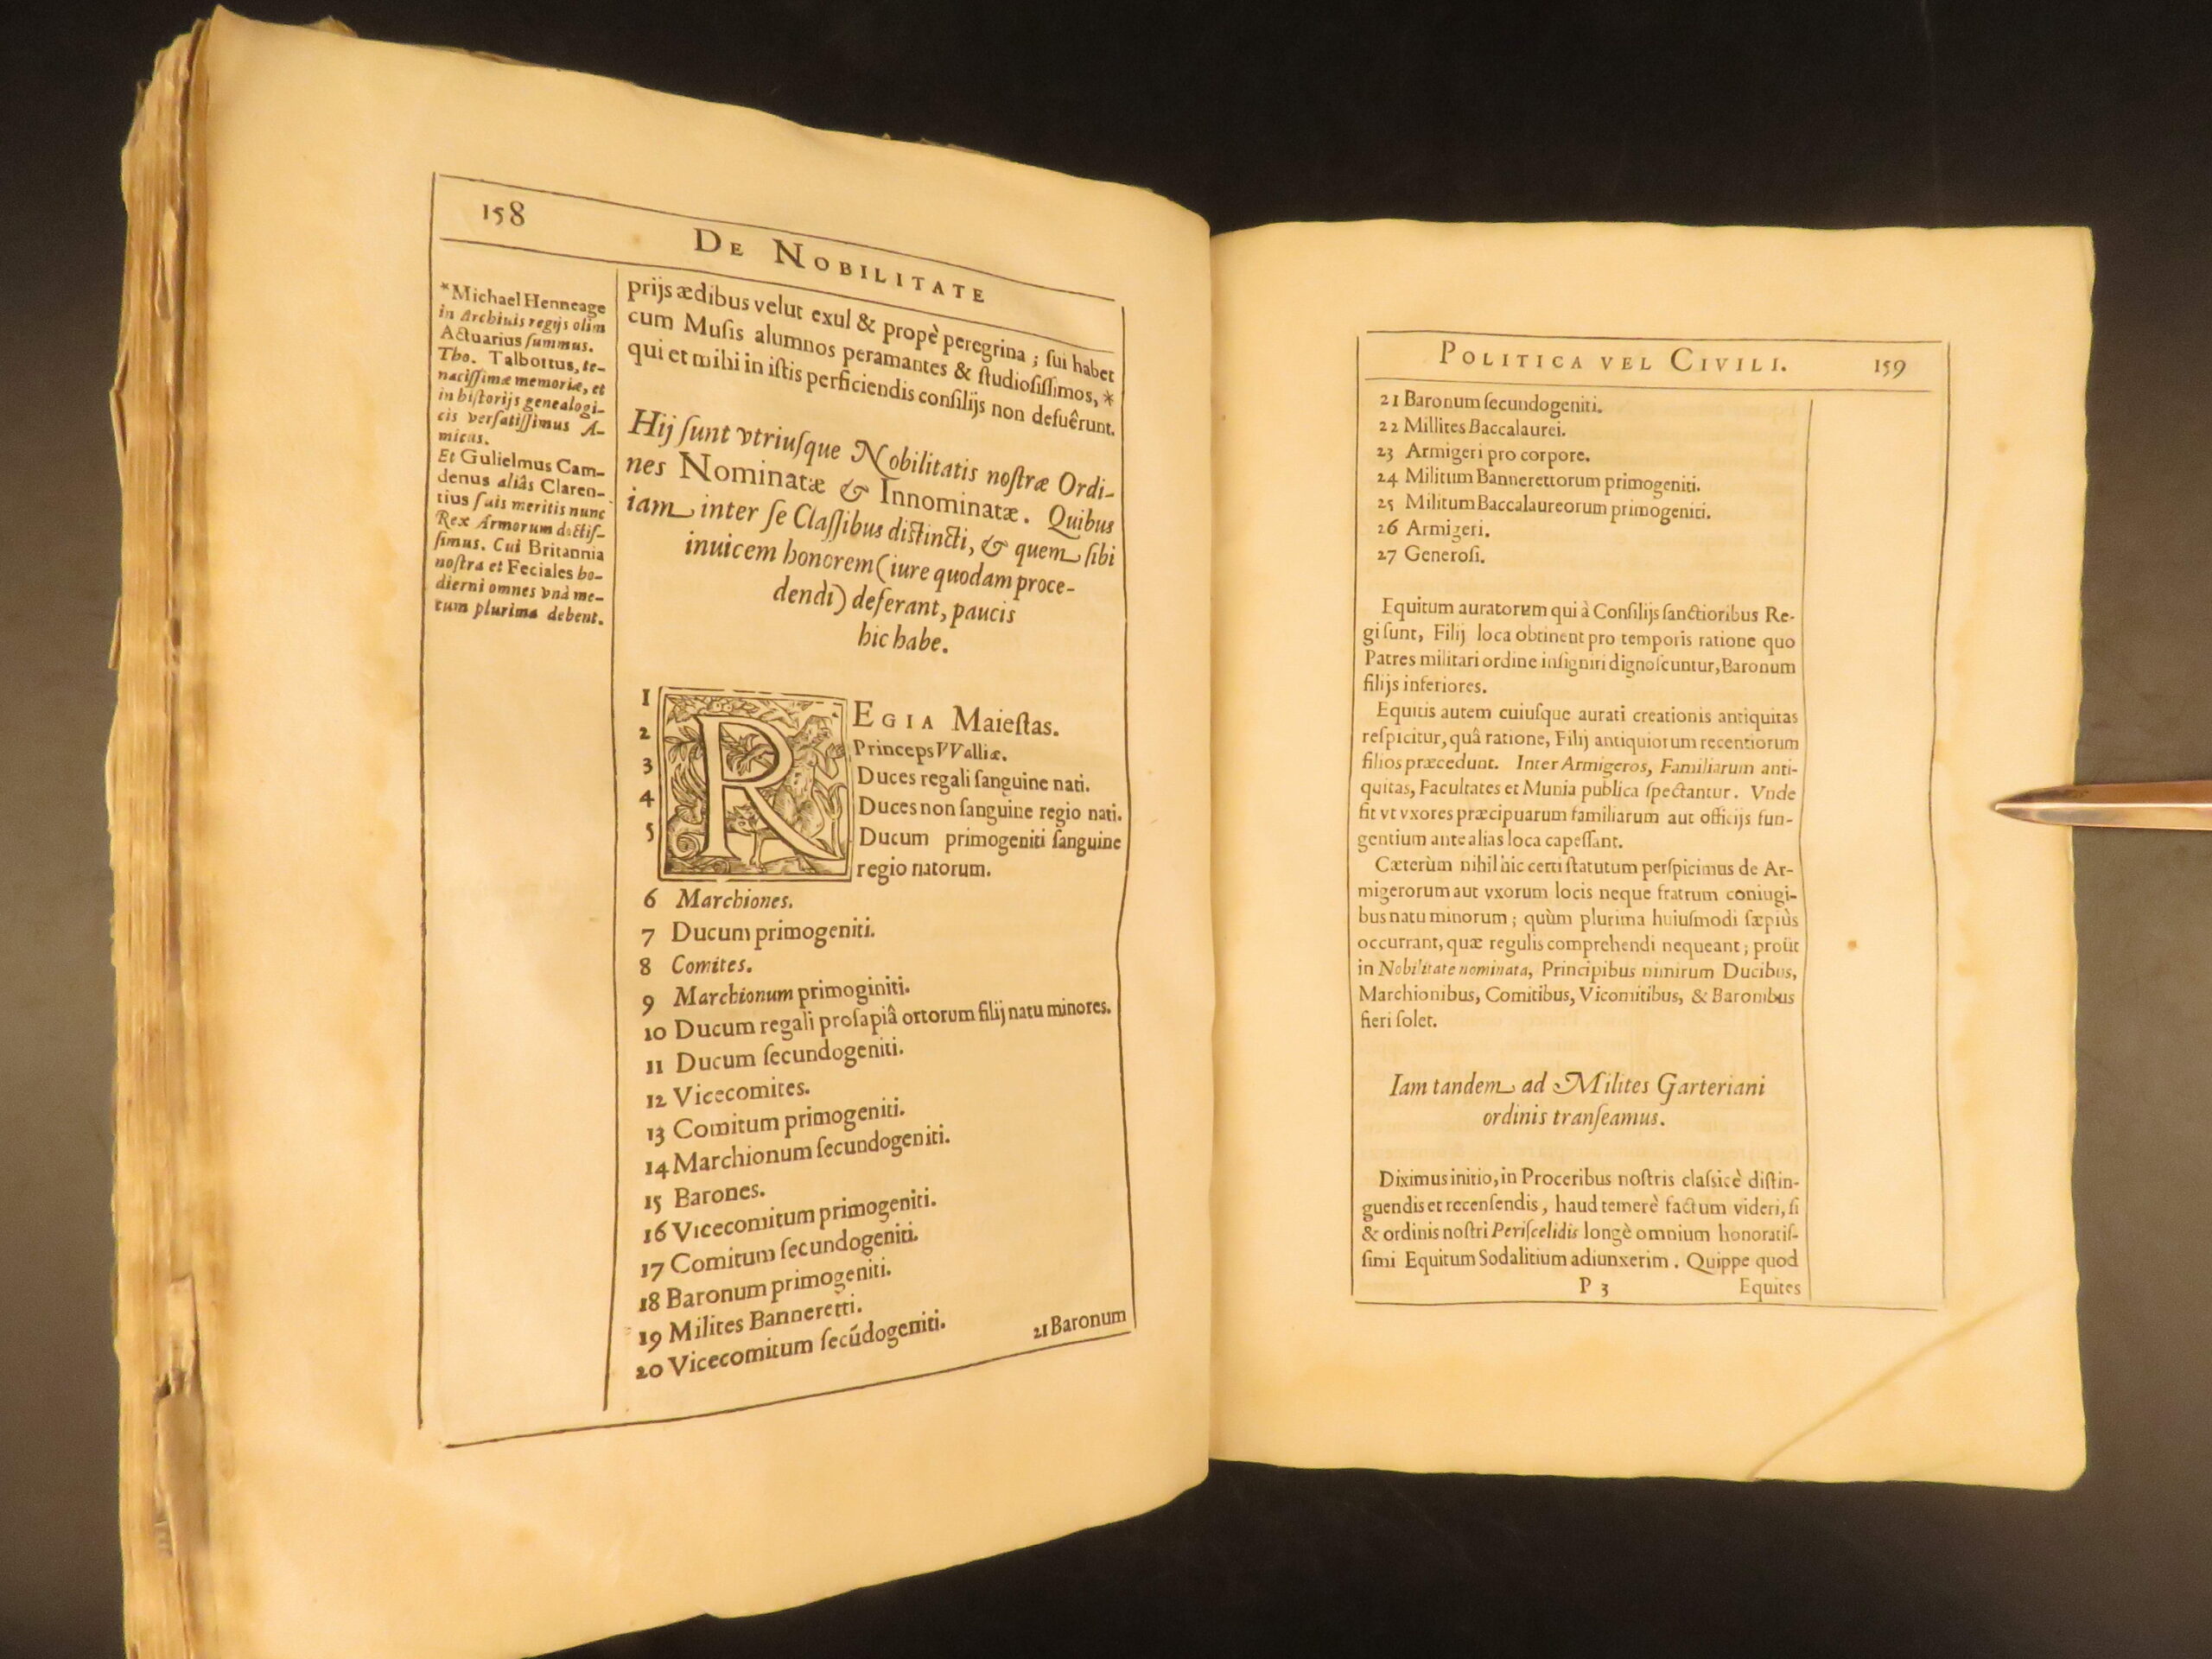 158
DE NOBILITATE
*Michael Henneage
in Archiuis regijs olim
Actuarius ſummus.
Tho. Talbottus, te-
naciſſimæ memoriæ, et
in hiſtorijs genealogi-
cis verſatiſſimus A-
micus.
Et Gulielmus Cam-
denus aliâs Claren-
tius ſuis meritis nunc
Rex Armorum doctiſ-
ſimus. Cui Britannia
noſtra et Feciales ho-
dierni omnes vnà me-
cum plurima debent.
prijs ædibus velut exul & propè peregrina ; ſui habet
cum Muſis alumnos peramantes & ſtudioſiſſimos, *
qui et mihi in iſtis perficiendis conſilijs non defuêrunt.
Hij ſunt vtriuſque Nobilitatis noſtræ Ordi-
nes Nominatæ & Innominatæ. Quibus
iam inter ſe Claſſibus diſtincti, & quem ſibi
inuicem honorem (iure quodam proce-
dendi) deferant, paucis
hic habe.
1 REGIA Maieſtas.
2 Princeps VValliæ.
3 Duces regali ſanguine nati.
4 Duces non ſanguine regio nati.
5 Ducum primogeniti ſanguine
regio natorum.
6 Marchiones.
7 Ducum primogeniti.
8 Comites.
9 Marchionum primoginiti.
10 Ducum regali proſapiâ ortorum filij natu minores.
11 Ducum ſecundogeniti.
12 Vicecomites.
13 Comitum primogeniti.
14 Marchionum ſecundogeniti.
15 Barones.
16 Vicecomitum primogeniti.
17 Comitum ſecundogeniti.
18 Baronum primogeniti.
19 Milites Banneretti.
20 Vicecomitum ſecūdogeniti.
21 Baronum
POLITICA VEL CIVILI.
159
21 Baronum ſecundogeniti.
22 Millites Baccalaurei.
23 Armigeri pro corpore.
24 Militum Bannerettorum primogeniti.
25 Militum Baccalaureorum primogeniti.
26 Armigeri.
27 Generoſi.
Equitum auratorum qui à Conſilijs ſanctioribus Re-
gi ſunt, Filij loca obtinent pro temporis ratione quo
Patres militari ordine inſigniri dignoſcuntur, Baronum
filijs inferiores.
Equitis autem cuiuſque aurati creationis antiquitas
reſpicitur, quâ ratione, Filij antiquiorum recentiorum
filios præcedunt. Inter Armigeros, Familiarum anti-
quitas, Facultates et Munia publica ſpectantur. Vnde
fit vt vxores præcipuarum familiarum aut officijs fun-
gentium ante alias loca capeſſant.
Cæterùm nihil hic certi ſtatutum perſpicimus de Ar-
migerorum aut vxorum locis neque fratrum coniugi-
bus natu minorum ; quùm plurima huiuſmodi ſæpiùs
occurrant, quæ regulis comprehendi nequeant ; proùt
in Nobilitate nominata, Principibus nimirum Ducibus,
Marchionibus, Comitibus, Vicomitibus, & Baronibus
fieri ſolet.
Iam tandem ad Milites Garteriani
ordinis tranſeamus.
Diximus initio, in Proceribus noſtris claſsicè diſtin-
guendis et recenſendis, haud temerè factum videri, ſi
& ordinis noſtri Periſcelidis longè omnium honoratiſ-
ſimi Equitum Sodalitium adiunxerim. Quippe quod
P 3
Equites